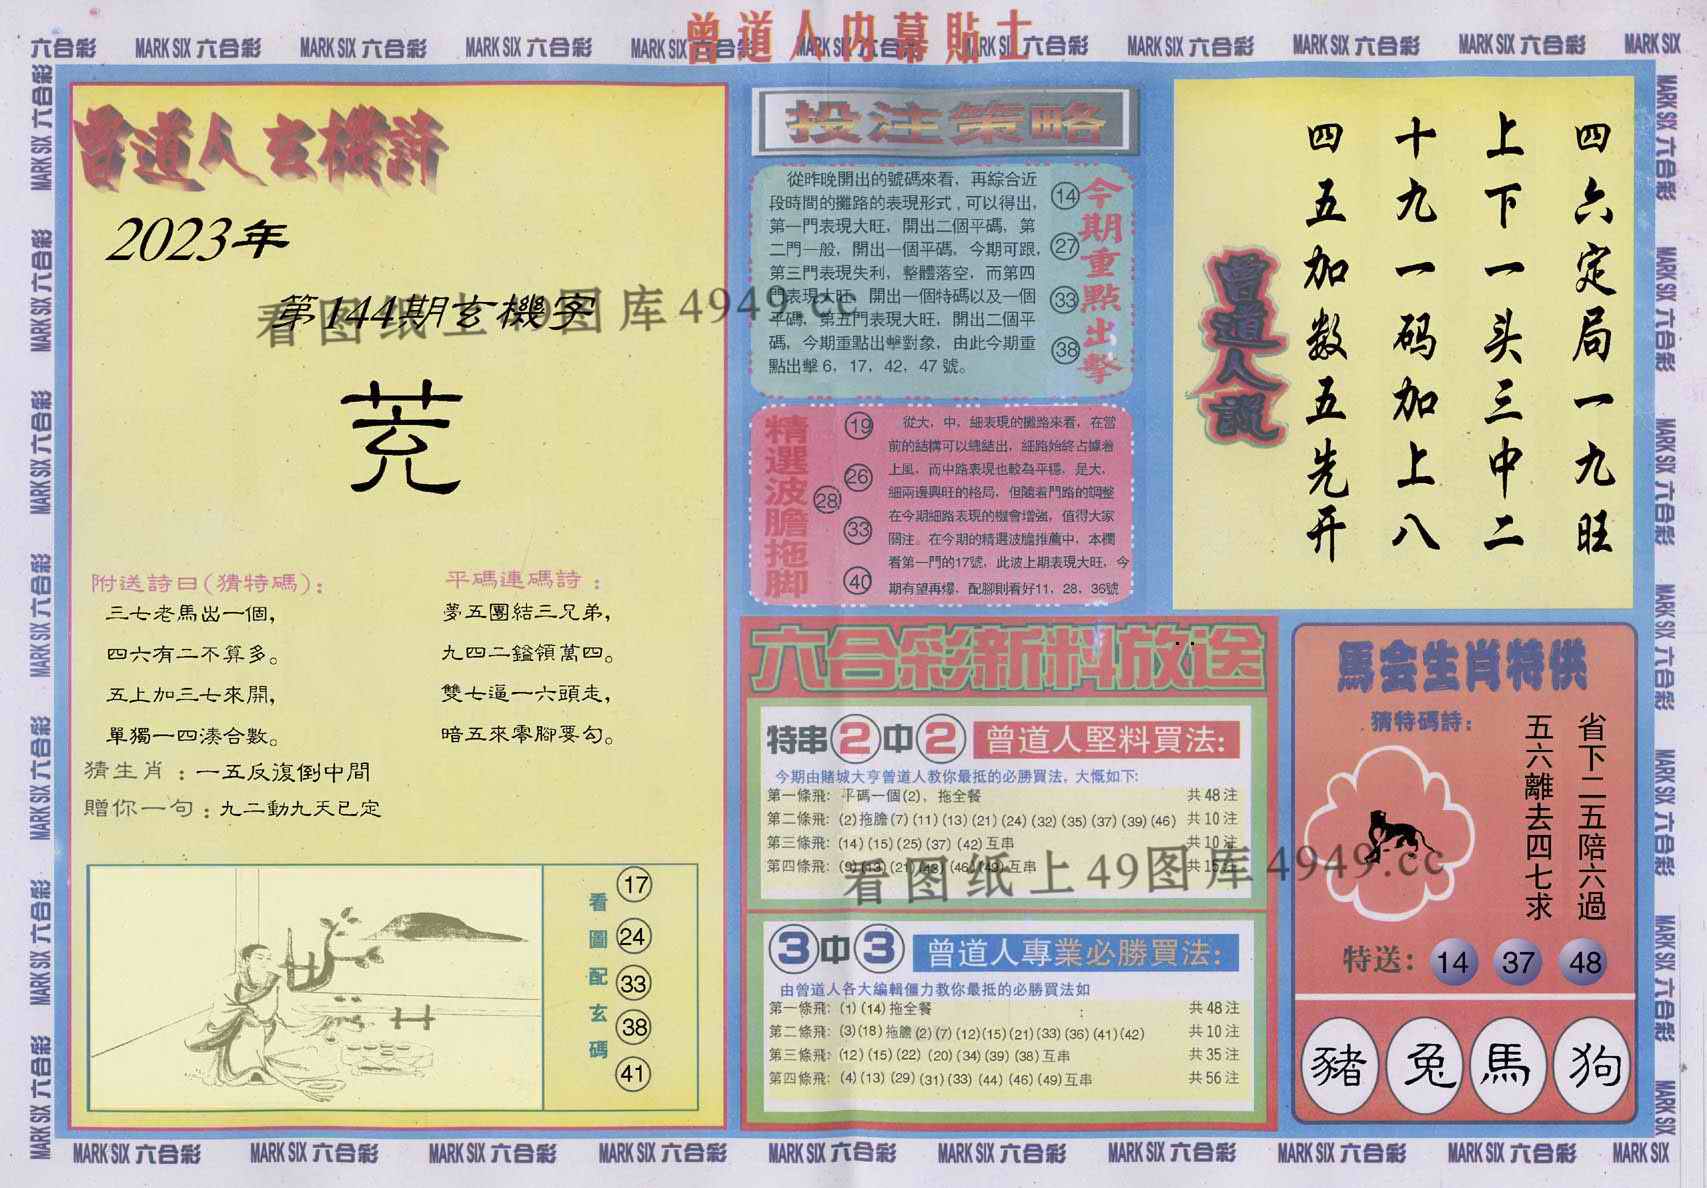 曾道人内幕貼士
六合彩 MARK SIX 六合彩 MARK SIX 六合彩 MARK SIX 六合彩 MARK SIX 六合彩 MARK SIX 六合彩 MARK SIX 六合彩 MARK SIX 六合彩 MARK SIX 六合彩 MARK SIX 六合彩 MARK SIX
曾道人玄機詩
2023年
第144期玄機字
看图纸上49图库4949.cc
附送詩曰(猜特碼):
三七老馬出一個,
四六有二不算多。
五上加三七來開,
單獨一四湊合數。
平碼連碼詩:
夢五團結三兄弟,
九四二鎰領萬四。
雙七逼一六頭走,
暗五來零腳要勾。
猜生肖:一五反復倒中間
贈你一句:九二動九天已定
看圖配玄碼
17
24
33
38
41
投注策略
從昨晚開出的號碼來看，再綜合近
段時間的攤路的表現形式,可以得出,
第一門表現大旺，開出二個平碼，第
二門一般，開出一個平碼，今期可跟,
第三門表現失利，整體落空，而第四
門表現大旺，開出一個特碼以及一個
平碼，第五門表現大旺，開出二個平
碼，今期重點出擊對象，由此今期重
點出擊6，17，42，47號。
14
27
33
38
今期重點出擊
精選波膽拖脚
19
26
28
33
40
從大，中，細表現的攤路來看，在當
前的結構可以總結出，細路始終占據着
上風，而中路表現也較為平穩，是大，
細兩邊興旺的格局，但隨着門路的調整
在今期細路表現的機會增強，值得大家
關注。在今期的精選波膽推薦中，本欄
看第一門的17號，此波上期表現大旺，今
期有望再爆，配腳則看好11，28，36號
曾道人說
四六定局一九旺
上下一头三中二
十九一码加上八
四五加数五先开
六合彩新料放送
特串2中2 曾道人堅料買法:
今期由賭城大亨曾道人教你最抵的必勝買法，大慨如下:
第一條飛: 平碼一個(2)，拖全餐 共48注
第二條飛: (2)拖膽(7)(11)(13)(21)(24)(32)(35)(37)(39)(46) 共10注
第三條飛: (14)(15)(25)(37)(42)互串 共10注
第四條飛: (9)(13)(21)(43)(46)(49)互串 共15注
看图纸上49图库4949.cc
3中3 曾道人專業必勝買法:
由曾道人各大編輯僵力教你最抵的必勝買法如
第一條飛: (1)(14)拖全餐 共48注
第二條飛: (3)(18)拖膽(2)(7)(12)(15)(21)(33)(36)(41)(42) 共10注
第三條飛: (12)(15)(22)(20)(34)(39)(38)互串 共35注
第四條飛: (4)(13)(29)(31)(33)(44)(46)(49)互串 共56注
馬会生肖特供
猜特碼詩:
省下二五陪六過
五六離去四七求
特送: 14 37 48
豬 兔 馬 狗
MARK SIX 六合彩 MARK SIX 六合彩 MARK SIX 六合彩 MARK SIX 六合彩 MARK SIX 六合彩 MARK SIX 六合彩 MARK SIX 六合彩 MARK SIX 六合彩 MARK SIX 六合彩 MARK SIX